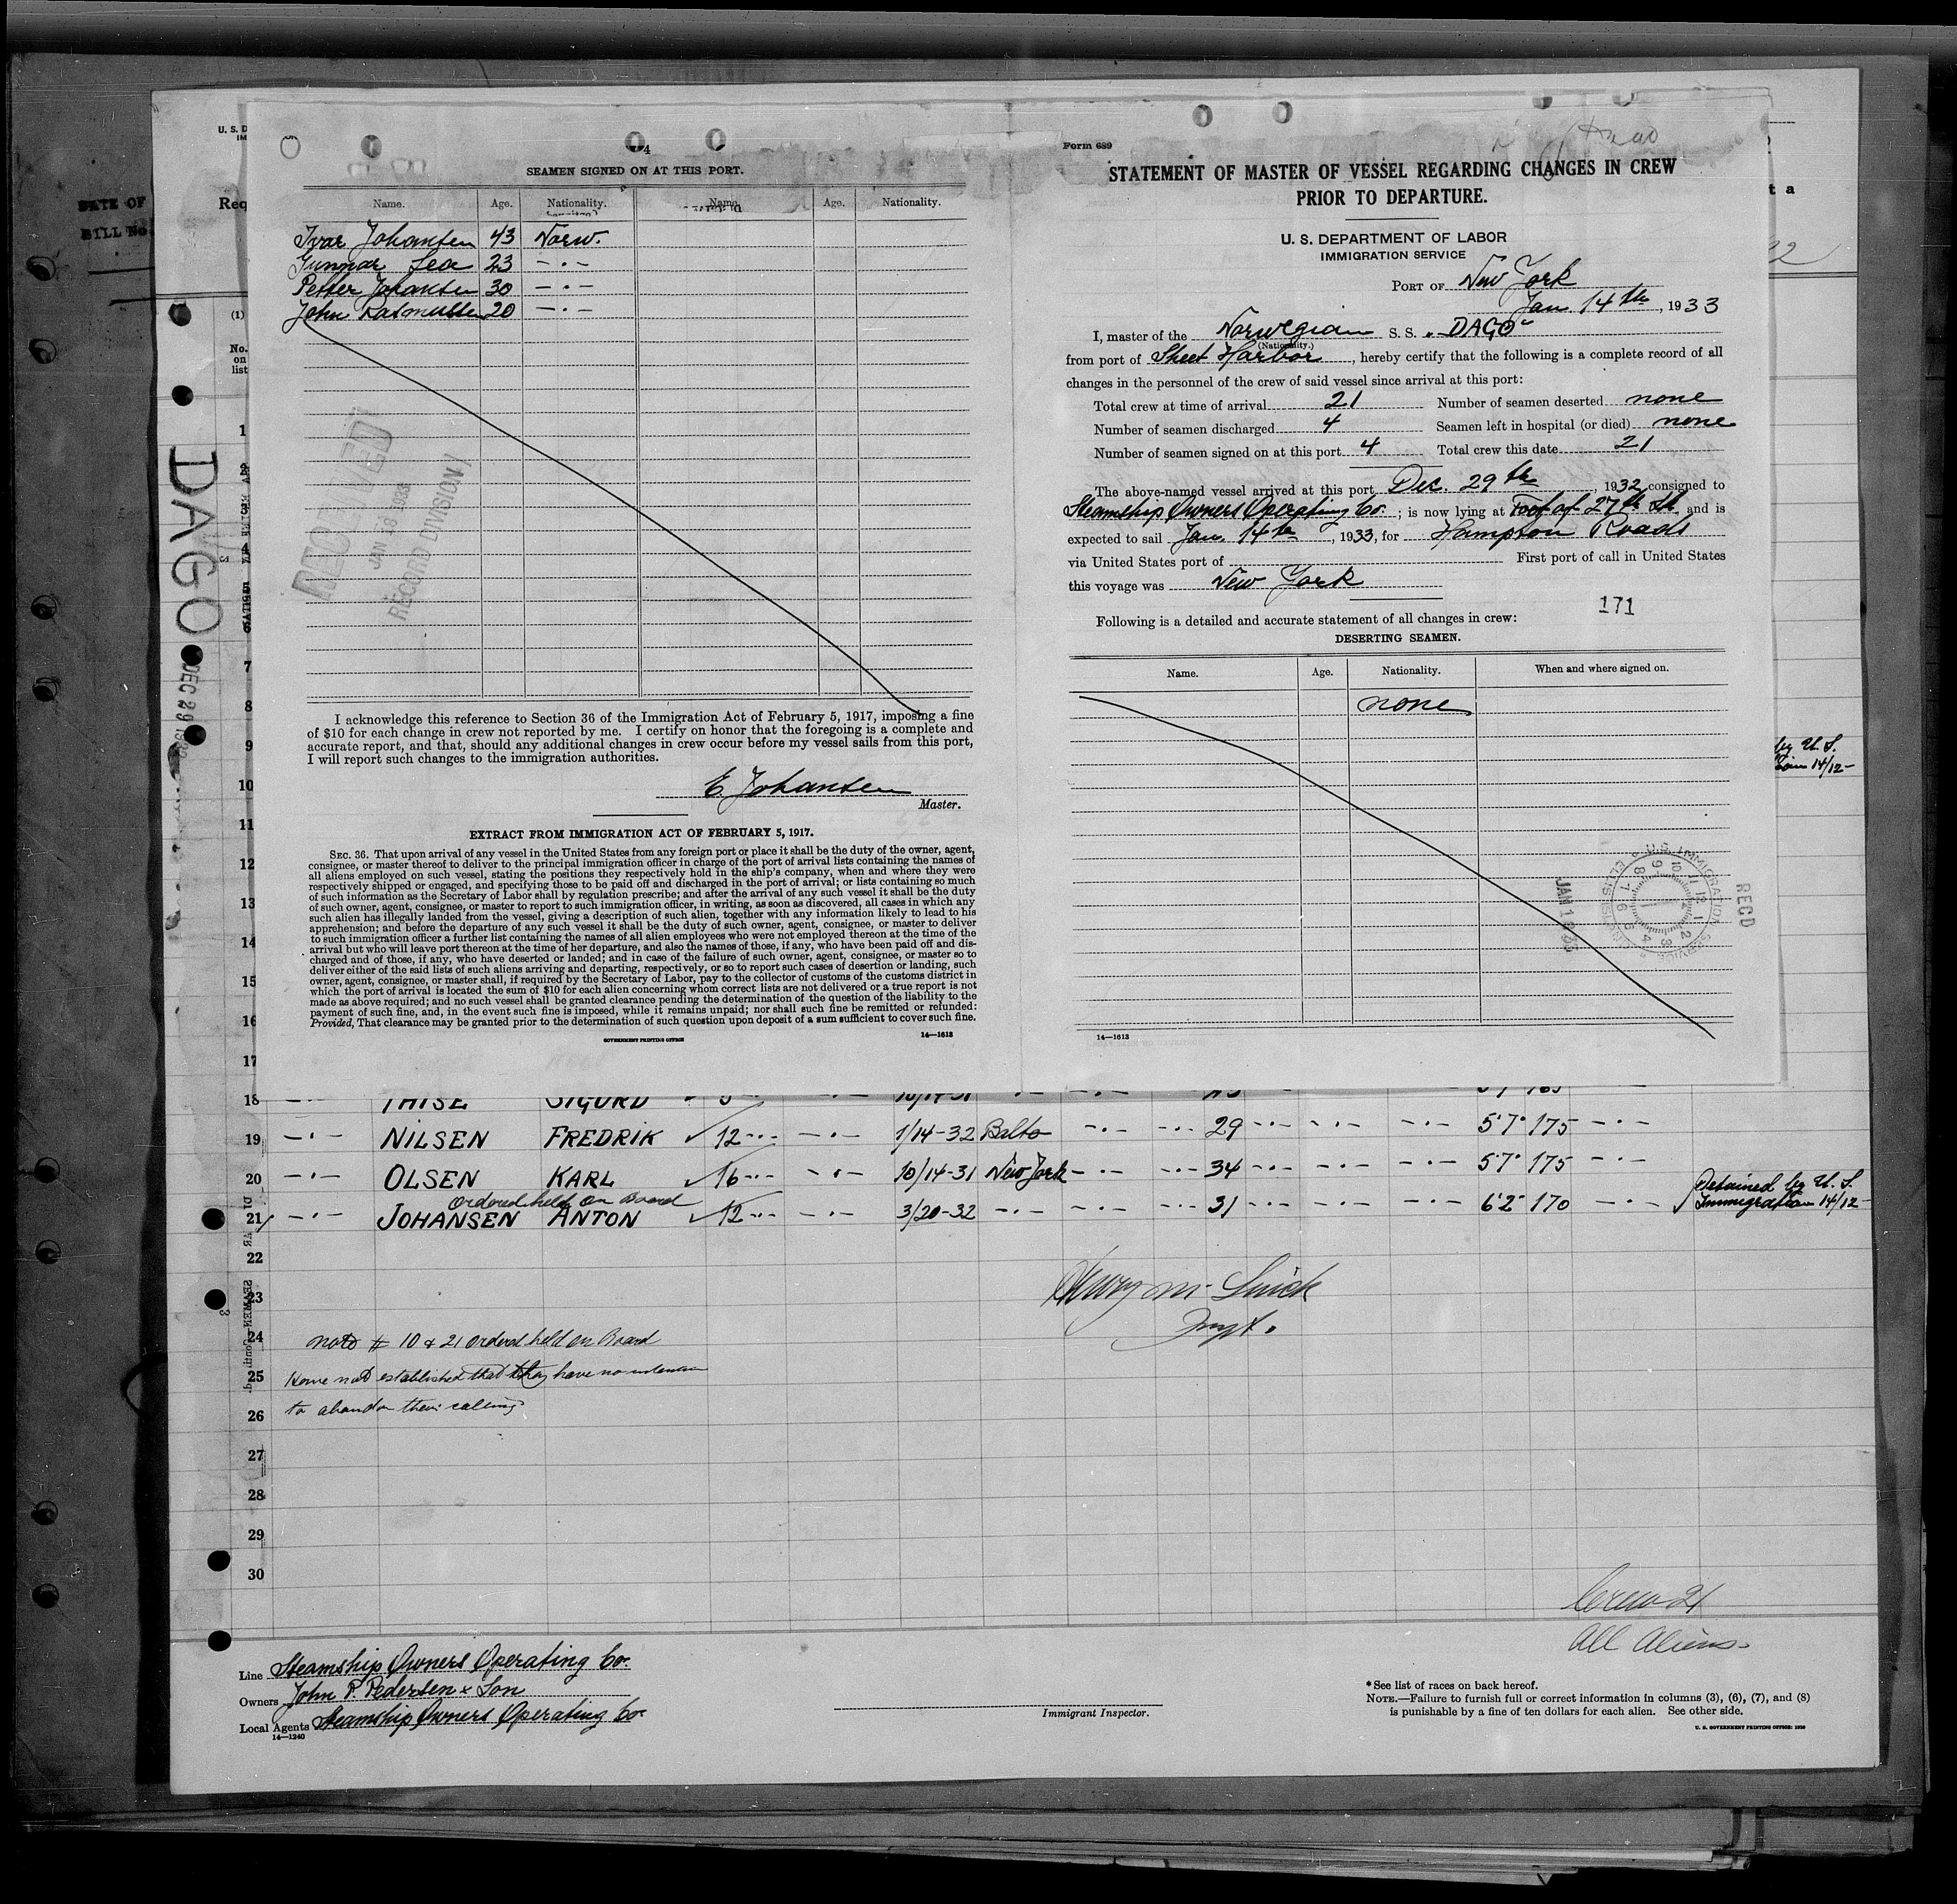 4
SEAMEN SIGNED ON AT THIS PORT.
Name. Age. Nationality. Name. Age. Nationality.
Ivar Johansen 43 Norw.
Gunnar 23 -·-
Petter Johansen 30 -·-
John Rasmussen 20 -·-
RECEIVED
JAN 18 1933
RECORD DIVISION
I acknowledge this reference to Section 36 of the Immigration Act of February 5, 1917, imposing a fine
of $10 for each change in crew not reported by me. I certify on honor that the foregoing is a complete and
accurate report, and that, should any additional changes in crew occur before my vessel sails from this port,
I will report such changes to the immigration authorities.
E. Johansen
Master.
EXTRACT FROM IMMIGRATION ACT OF FEBRUARY 5, 1917.
SEC. 36. That upon arrival of any vessel in the United States from any foreign port or place it shall be the duty of the owner, agent,
consignee, or master thereof to deliver to the principal immigration officer in charge of the port of arrival lists containing the names of
all aliens employed on such vessel, stating the positions they respectively hold in the ship's company, when and where they were
respectively shipped or engaged, and specifying those to be paid off and discharged in the port of arrival; or lists containing so much
of such information as the Secretary of Labor shall by regulation prescribe; and after the arrival of any such vessel it shall be the duty
of such owner, agent, consignee, or master to report to such immigration officer, in writing, as soon as discovered, all cases in which any
such alien has illegally landed from the vessel, giving a description of such alien, together with any information likely to lead to his
apprehension; and before the departure of any such vessel it shall be the duty of such owner, agent, consignee, or master to deliver
to such immigration officer a further list containing the names of all alien employees who were not employed thereon at the time of the
arrival but who will leave port thereon at the time of her departure, and also the names of those, if any, who have been paid off and dis-
charged and of those, if any, who have deserted or landed; and in case of the failure of such owner, agent, consignee, or master so to
deliver either of the said lists of such aliens arriving and departing, respectively, or so to report such cases of desertion or landing, such
owner, agent, consignee, or master shall, if required by the Secretary of Labor, pay to the collector of customs of the customs district in
which the port of arrival is located the sum of $10 for each alien concerning whom correct lists are not delivered or a true report is not
made as above required; and no such vessel shall be granted clearance pending the determination of the question of the liability to the
payment of such fine, and, in the event such fine is imposed, while it remains unpaid; nor shall such fine be remitted or refunded:
Provided, That clearance may be granted prior to the determination of such question upon deposit of a sum sufficient to cover such fine.
GOVERNMENT PRINTING OFFICE 14—1613
Form 689
STATEMENT OF MASTER OF VESSEL REGARDING CHANGES IN CREW
PRIOR TO DEPARTURE.
U. S. DEPARTMENT OF LABOR
IMMIGRATION SERVICE
PORT OF New York
Jan. 14th, 1933
I, master of the Norwegian S. S. "DAGO"
(Nationality.)
from port of Sheet Harbor, hereby certify that the following is a complete record of all
changes in the personnel of the crew of said vessel since arrival at this port:
Total crew at time of arrival 21 Number of seamen deserted none
Number of seamen discharged 4 Seamen left in hospital (or died) none
Number of seamen signed on at this port 4 Total crew this date 21
The above-named vessel arrived at this port Dec. 29th, 1932, consigned to
Steamship Owners Operating Co.; is now lying at Foot of 27th St. and is
expected to sail Jan. 14th, 1933, for Hampton Roads
via United States port of First port of call in United States
this voyage was New York
171
Following is a detailed and accurate statement of all changes in crew:
DESERTING SEAMEN.
Name. Age. Nationality. When and where signed on.
none
U.S. IMMIGRATION SERVICE
RECD
14—1613
DATE OF
BILL No.
U. S. D
IM
Req
(1)
No.
on
list
DAGO
DEC 29 1932
t a
by U. S.
14/12-
1
2
3
4
5
6
7
8
9
10
11
12
13
14
15
16
17
18 THISE SIGURD 10/14-31
19 -·- NILSEN FREDRIK ✓ 12 -·- -·- 1/14-32 Balto -·- -·- 29 -·- -·- -·- 5'7" 175 -·-
20 -·- OLSEN KARL ✓ 16 -·- -·- 10/14-31 New York -·- -·- 34 -·- -·- -·- 5'7" 175 -·-
Ordered held on Board
21 -·- JOHANSEN ANTON ✓ 12 -·- -·- 3/20-32 -·- -·- -·- 31 -·- -·- -·- 6'2" 170 -·- Detained by U. S.
Immigration 14/12-
22
23
24
25
26
27
28
29
30
note # 10 & 21 ordered held on Board
Have not established that they have no intention
to abandon their calling
Crew 21
All Aliens
Line Steamship Owners Operating Co.
Owners John P. Pedersen & Son
Local Agents Steamship Owners Operating Co.
14—1240
Immigrant Inspector.
*See list of races on back hereof.
NOTE.—Failure to furnish full or correct information in columns (3), (6), (7), and (8)
is punishable by a fine of ten dollars for each alien. See other side.
U. S. GOVERNMENT PRINTING OFFICE: 1930